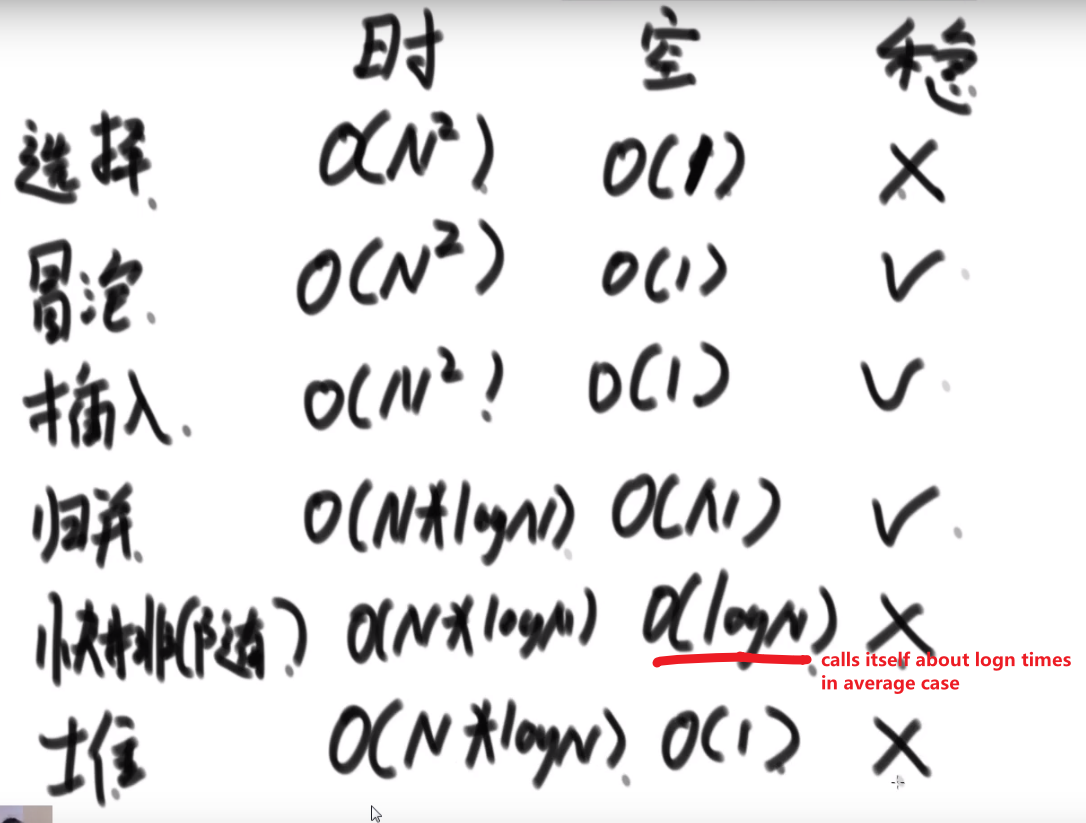 时 空 稳
选择 O(N²) O(1) ×
冒泡 O(N²) O(1) ✓
插入 O(N²) O(1) ✓
归并 O(N*logN) O(N) ✓
快排(随) O(N*logN) O(logN) ×
calls itself about logn times
in average case
堆 O(N*logN) O(1) ×